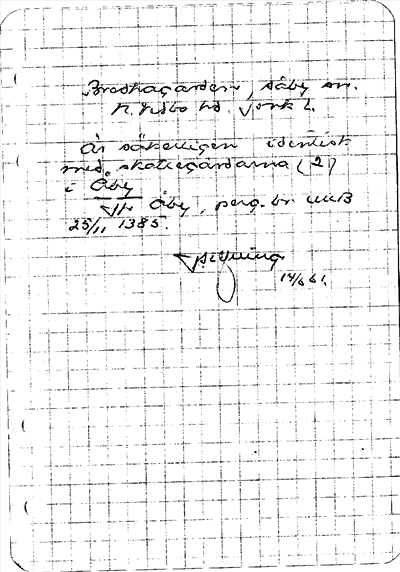 Bredhagården, Säby sn.
N. Vedbo hd. Jönk l.
Är säkerligen identisk
med skattegårdarna (2)
i Åby
Åby, perg. br. UUB
25/11 1385.
14/6 61.